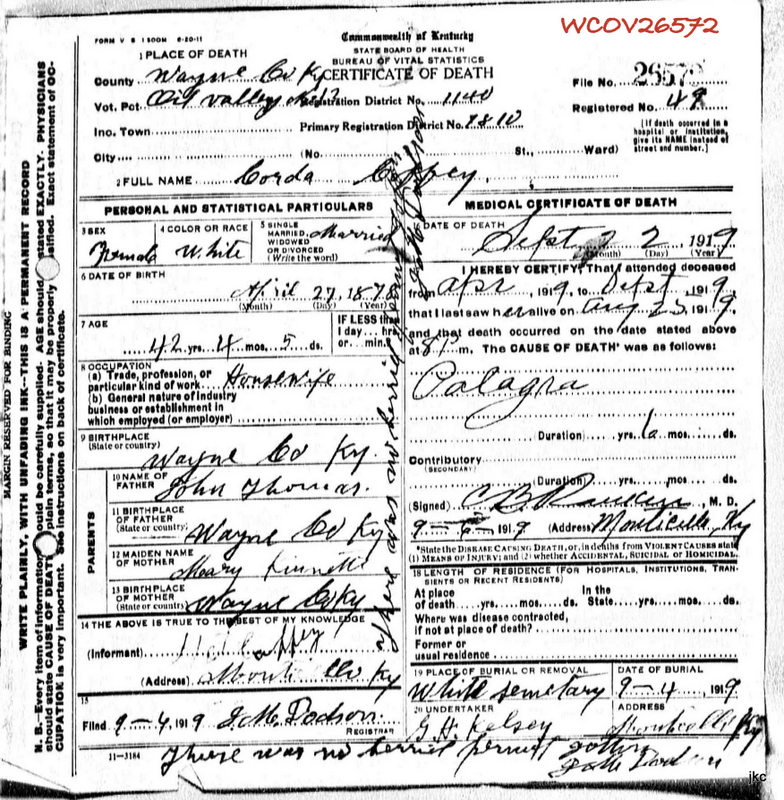 WCOV26572
FORM V S 1 500M 6-20-11
Commonwealth of Kentucky
STATE BOARD OF HEALTH
BUREAU OF VITAL STATISTICS
CERTIFICATE OF DEATH
1 PLACE OF DEATH
County Wayne Co Ky
Vot. Pct Oil valley
Registration District No. 1140
Inc. Town
Primary Registration District No. 7810
City (No St., Ward)
File No. 26572
Registered No. 49
(If death occurred in a
hospital or institution,
give its NAME instead of
street and number.)
2 FULL NAME Corda Coffey
PERSONAL AND STATISTICAL PARTICULARS
3 SEX
Female
4 COLOR OR RACE
White
5 SINGLE
MARRIED,
WIDOWED
OR DIVORCED
(Write the word)
Married
6 DATE OF BIRTH
April 27, 1878
(Month) (Day) (Year)
7 AGE
42 yrs. 4 mos. 5 ds.
IF LESS than
1 day hrs.
or min.
8 OCCUPATION
(a) Trade, profession, or
particular kind of work Housewife
(b) General nature of industry
business or establishment in
which employed (or employer)
9 BIRTHPLACE
(State or country)
Wayne Co Ky.
PARENTS
10 NAME OF
FATHER
John Thomas.
11 BIRTHPLACE
OF FATHER
(State or country)
Wayne Co Ky
12 MAIDEN NAME
OF MOTHER
Mary
13 BIRTHPLACE
OF MOTHER
(State or country)
Wayne Co Ky
14 THE ABOVE IS TRUE TO THE BEST OF MY KNOWLEDGE
(Informant) Coffey
(Address) Co Ky
15
Filed 9-4, 1919 J. M. Dodson.
REGISTRAR
11-3184
MEDICAL CERTIFICATE OF DEATH
DATE OF DEATH
Sept 2, 1919
(Month) (Day) (Year)
I HEREBY CERTIFY, That I attended deceased
from apr, 1919, to Sept, 1919,
that I last saw her alive on aug 25, 1919,
and that death occurred on the date stated above
at m. The CAUSE OF DEATH* was as follows:
Palagra
Duration) yrs. 6 mos. ds.
Contributory
(SECONDARY)
Duration) yrs. mos. ds.
(Signed) C B Rankin, M. D.
9- , 1919 (Address) Monticello, Ky
*State the DISEASE CAUSING DEATH, or, in deaths from VIOLENT CAUSES state
(1) MEANS OF INJURY; and (2) whether ACCIDENTAL, SUICIDAL or HOMICIDAL.
18 LENGTH OF RESIDENCE (FOR HOSPITALS, INSTITUTIONS, TRAN-
SIENTS OR RECENT RESIDENTS)
At place
of death yrs. mos. ds.
In the
State yrs. mos. ds.
Where was disease contracted,
if not at place of death?
Former or
usual residence
19 PLACE OF BURIAL OR REMOVAL
White semetary
DATE OF BURIAL
9-4, 1919.
20 UNDERTAKER
G. H. Kelsey
ADDRESS
Monticello Ky
There was no berriel permit
There was no berriel permit
MARGIN RESERVED FOR BINDING
WRITE PLAINLY, WITH UNFADING INK—THIS IS A PERMANENT RECORD
N. B.—Every item of information should be carefully supplied. AGE should stated EXACTLY. PHYSICIANS
should state CAUSE OF DEATH plain terms, so that it may be properly classified. Exact statement of OC-
CUPATION is very important. See instructions on back of certificate.
jkc